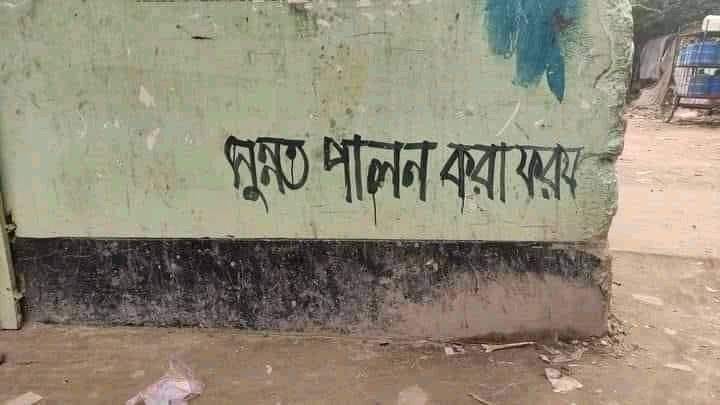 সুন্নত পালন করা ফরয